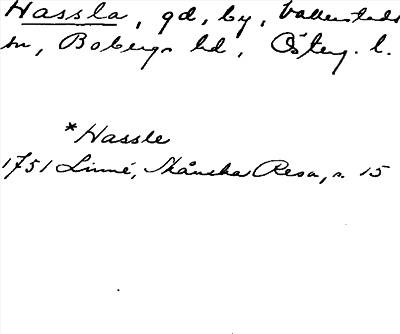 Hassla, gd, by, Vallerstads
sn, Bobergs hd, Österg. l.
*Hassle
1751 Linné, Skånska Resa, s. 15